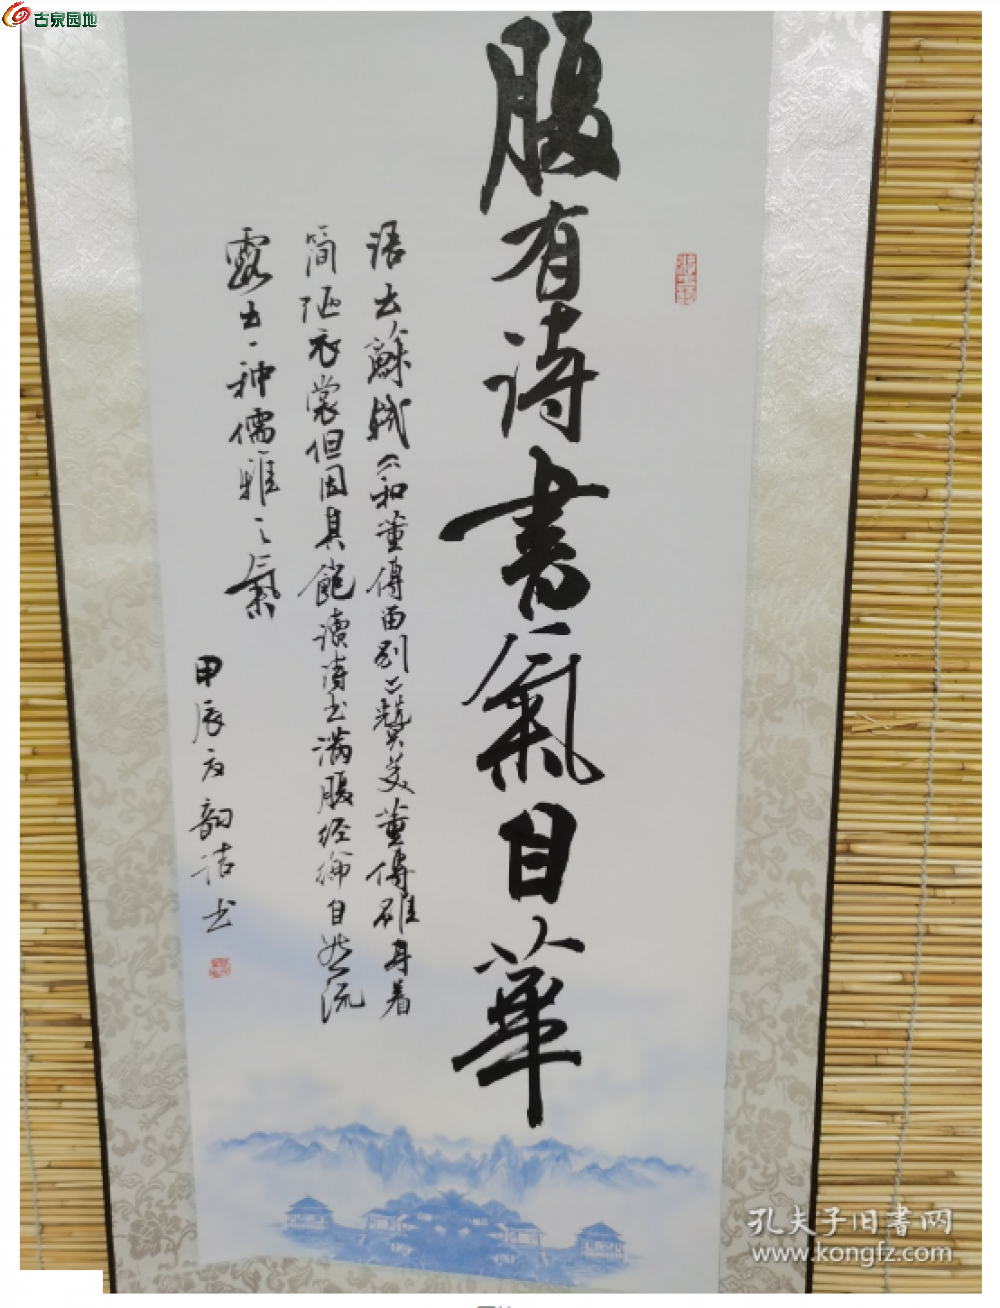 古泉园地
腹有诗書氣自華
语出蘇軾《和董傳留别》赞美董傳雖身着
简陋衣裳但因其飽读诗书满腹经纶自然流
露出一种儒雅之氣
甲辰夏韵洁书
孔夫子旧書网
www.kongfz.com